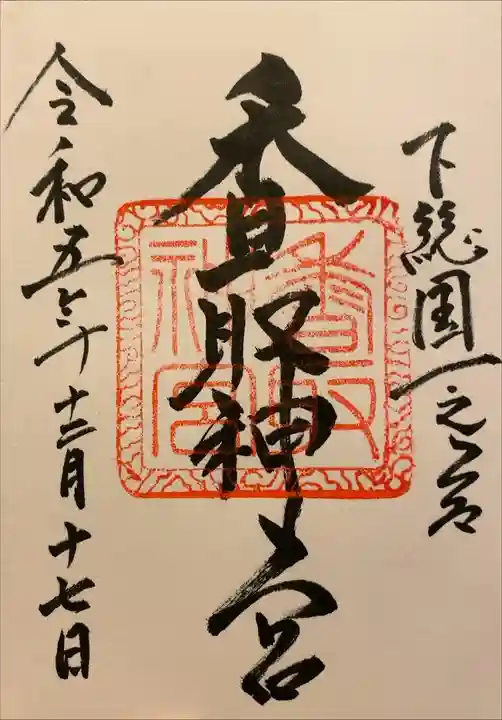 下総国一之宮
香取神宮
香取
神宮
令和五年十二月十七日